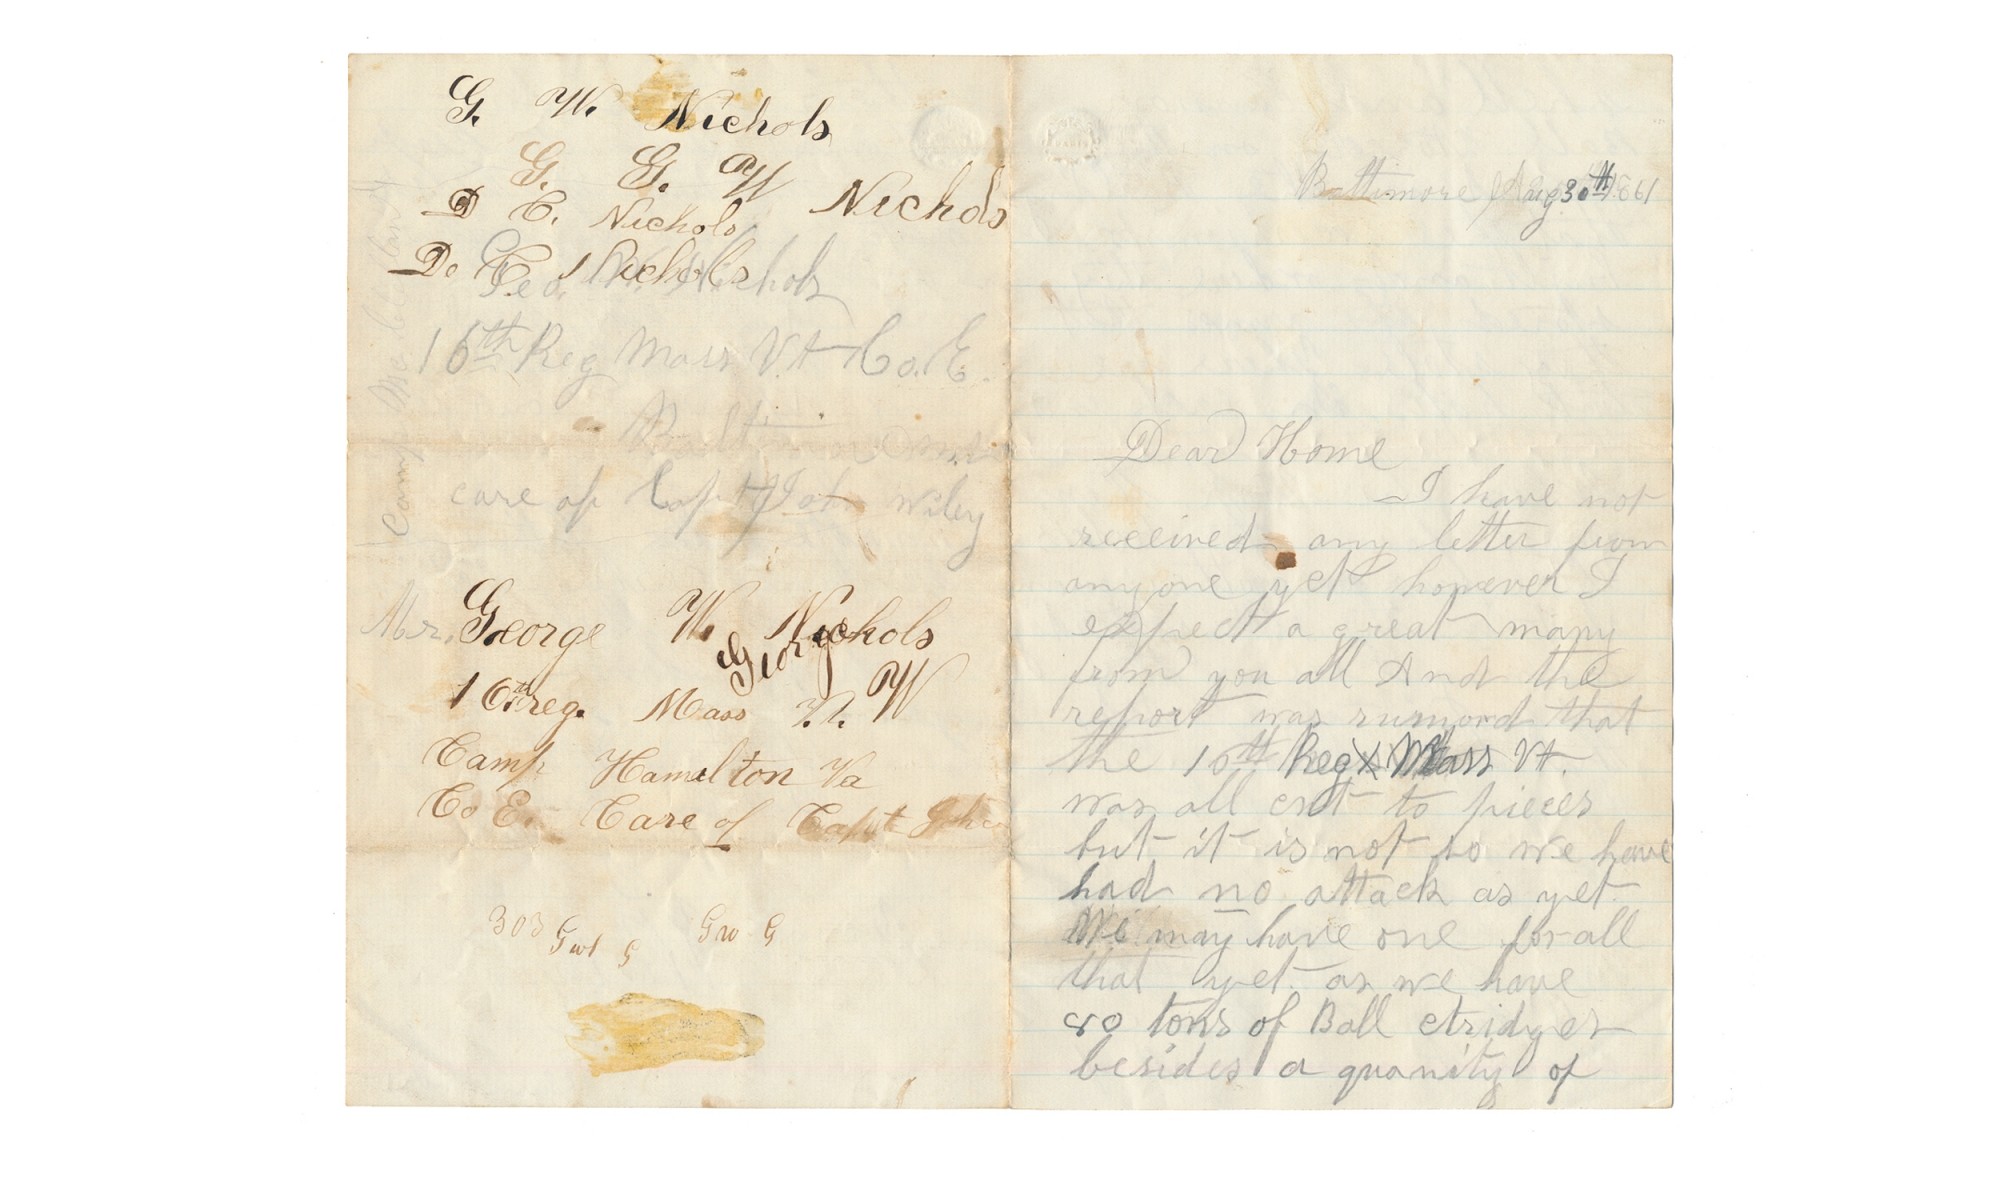 G. W. Nichols
G. G. W Nichols
D E. Nichols
Do Geo. Nichols
16th Reg Mass Vt Co. E.
Baltimore
care of Capt John Wiley
Camp Mc Clelland
Mr. George W. Nichols
George
16th reg. Mass V. W
Camp Hamilton Va
Co E. Care of Capt John
303 Gwt G Gw G
Baltimore Aug 30th 1861
Dear Home
I have not
received any letter from
anyone yet however I
expect a great many
from you all And the
report was rumord that
the 16th Reg Mass Vt.
was all cut to pieces
but it is not so we have
had no attack as yet.
We may have one for all
that yet as we have
80 tons of Ball ctridges
besides a quanity of